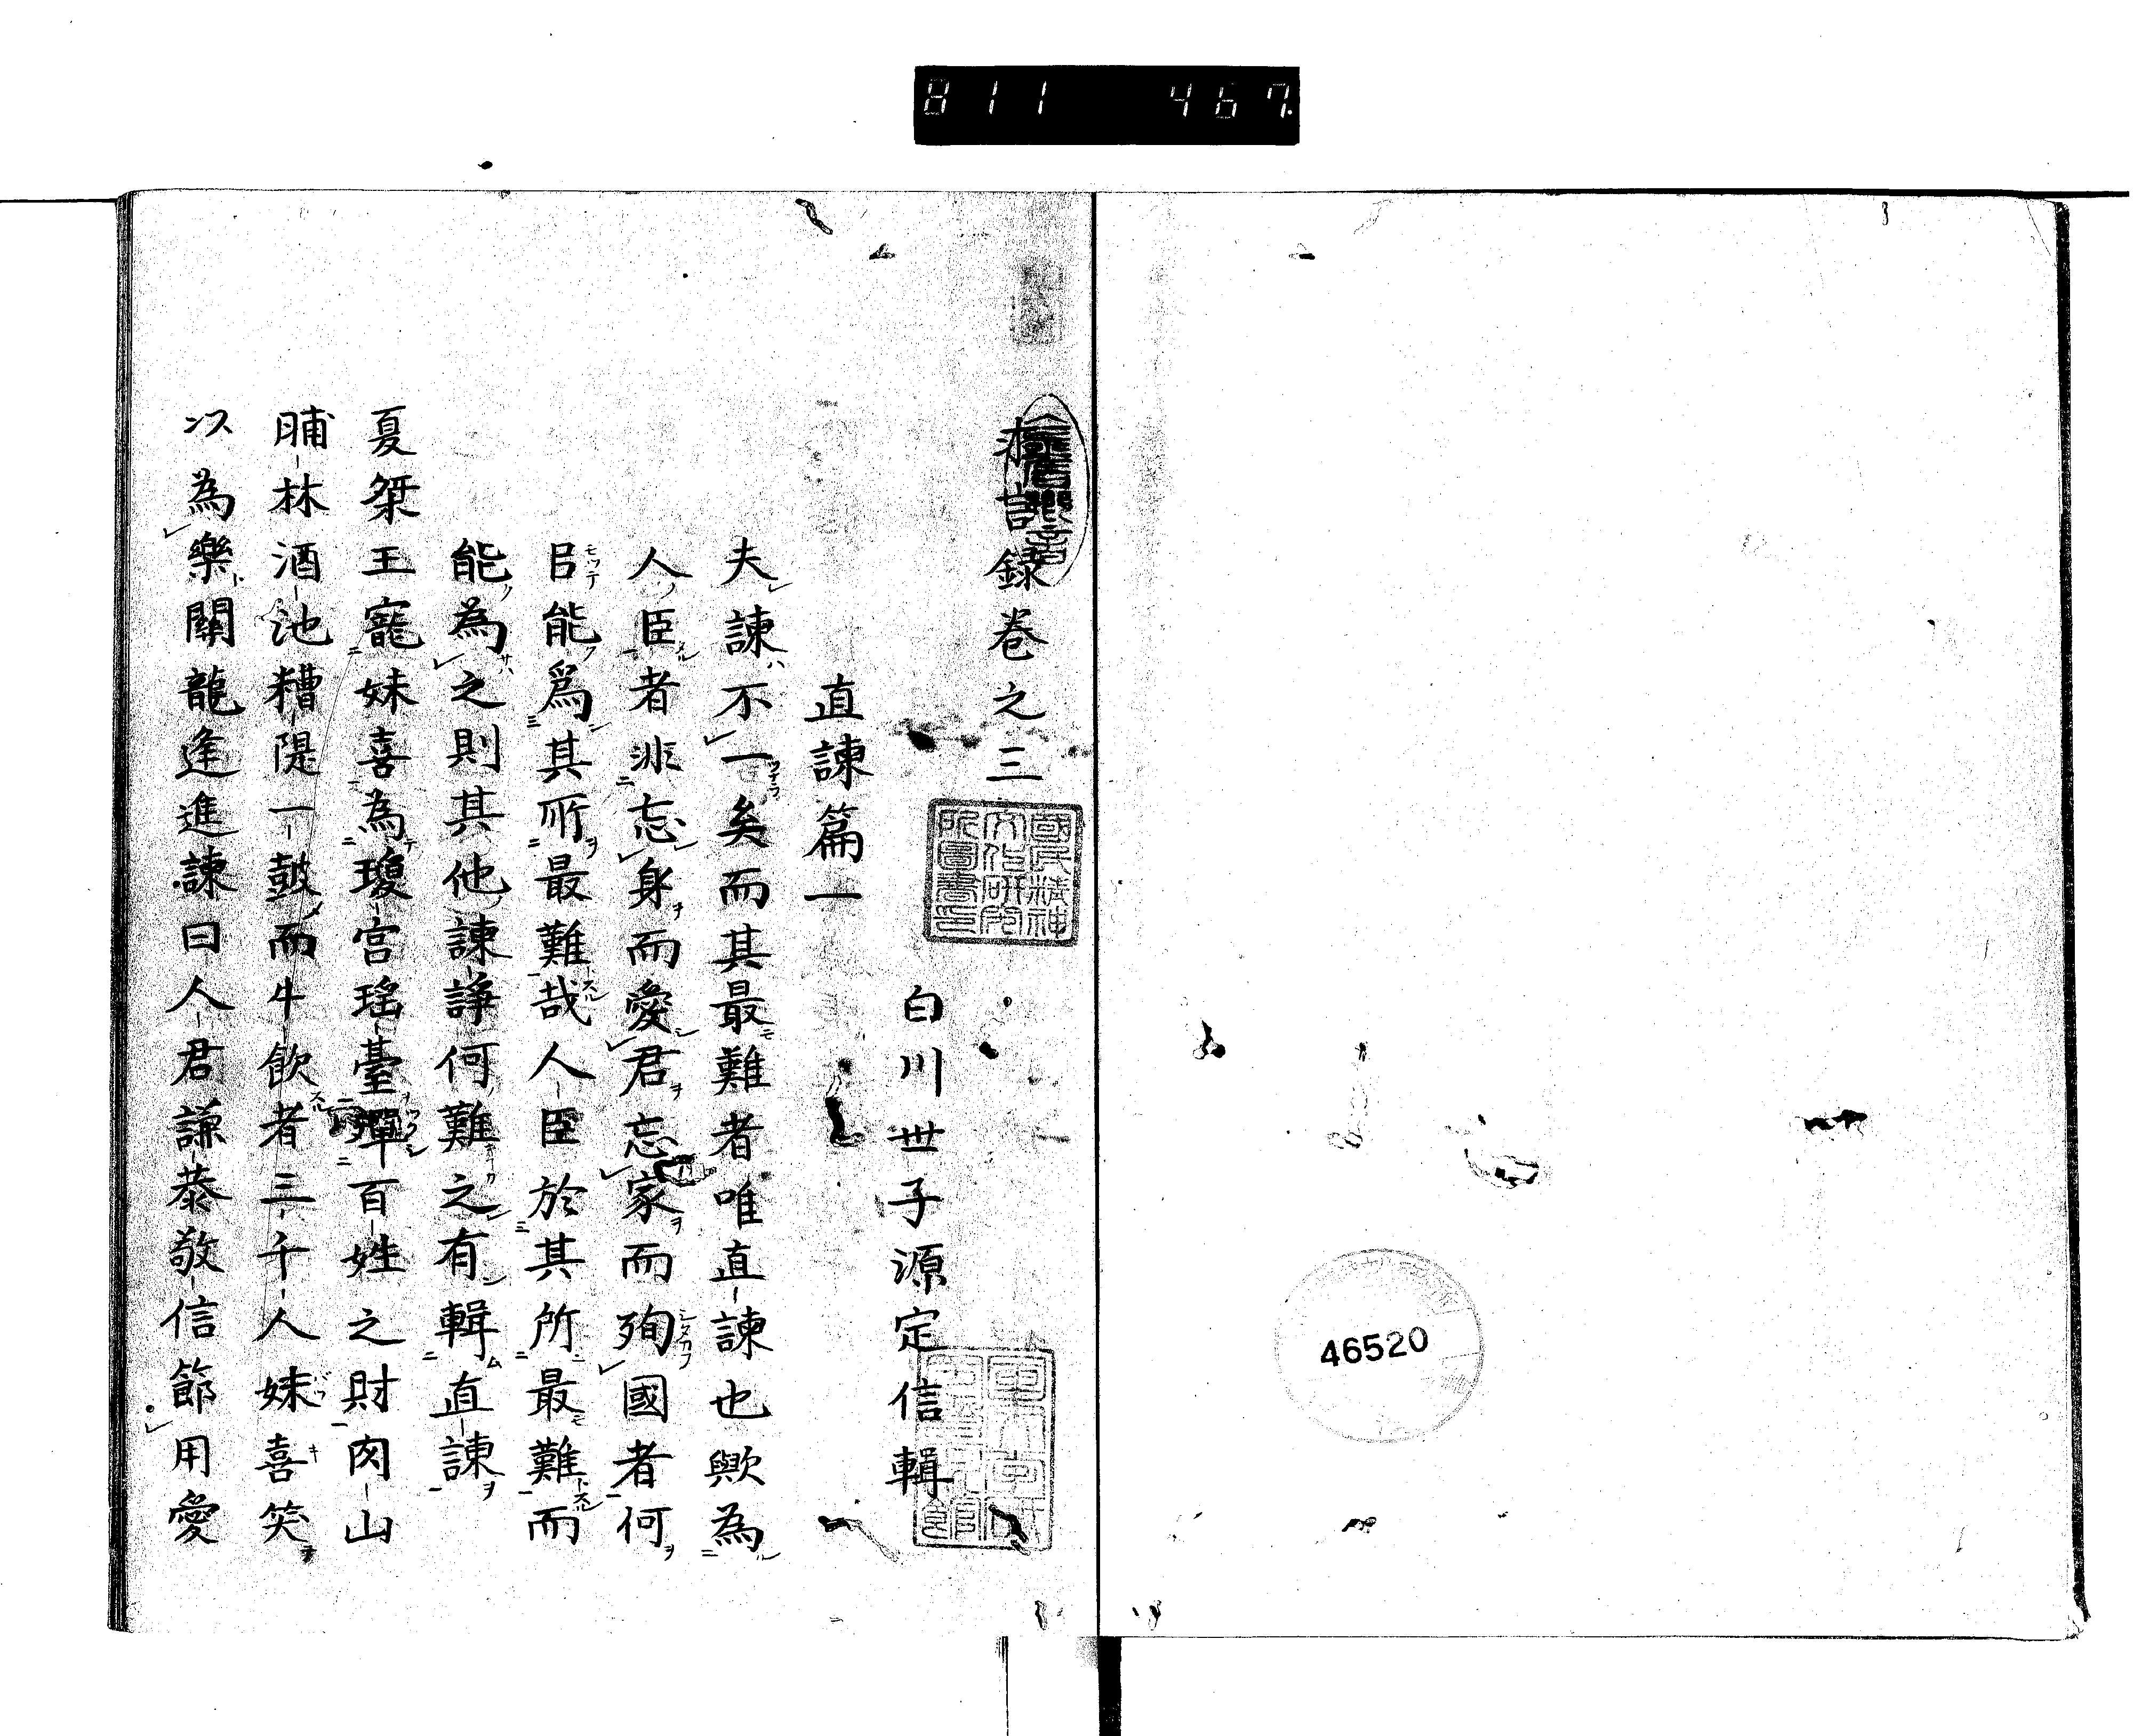 811 467.
求言録卷之三
白川世子源定信輯
直諫篇一
夫諫不一矣而其最難者唯直諫也歟為
人臣者非忘身而愛君忘家而殉國者何
㠯能爲其所最難哉人臣於其所最難而
能為之則其他諫諍何難之有輯直諫
夏桀王寵妹喜為瓊宫瑤臺殫百姓之財肉山
脯林酒池糟隄一鼓而牛飲者三千人妹喜笑
以為樂關龍逢進諫曰人君謙恭敬信節用愛
國民精神
文化研究
所圖書印
46520